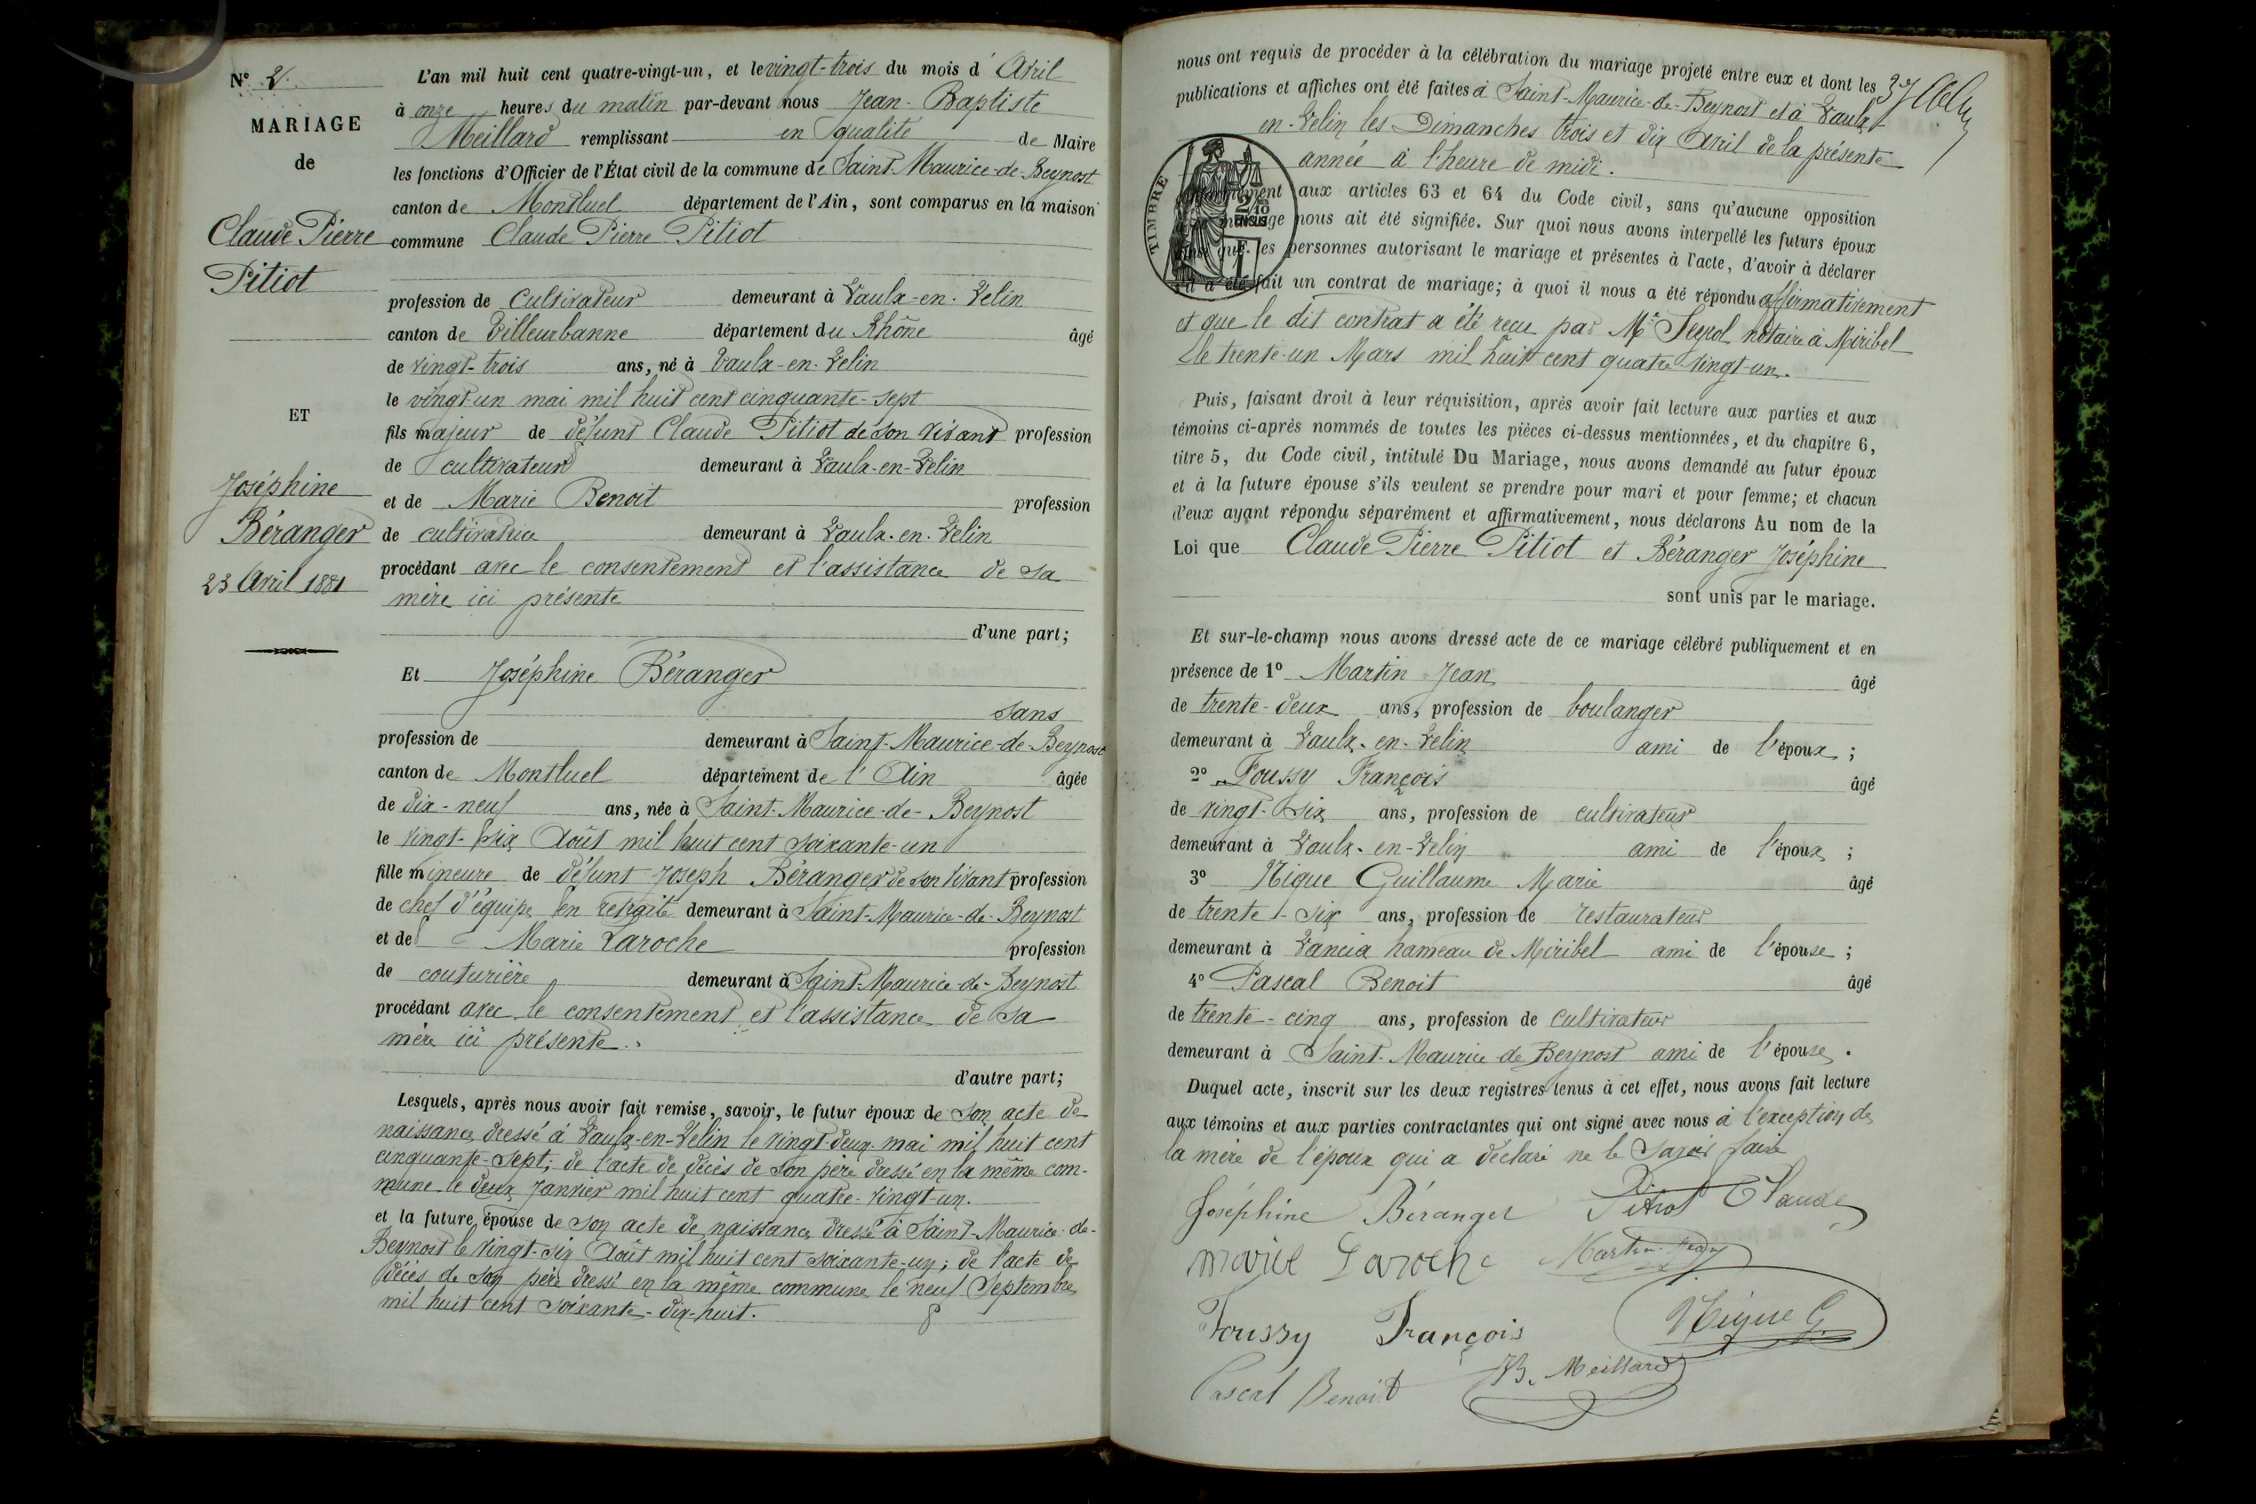 N° 2.
MARIAGE
de
Claude Pierre
Pitiot
ET
Joséphine
Béranger
23 Avril 1881
L'an mil huit cent quatre-vingt-un, et le vingt-trois du mois d'Avril
à onze heures du matin par-devant nous Jean-Baptiste
Meillard remplissant en qualité de Maire
les fonctions d'Officier de l'État civil de la commune de Saint-Maurice-de-Beynost
canton de Montluel département de l'Ain, sont comparus en la maison
commune Claude Pierre Pitiot
profession de Cultivateur demeurant à Vaulx-en-Velin
canton de Villeurbanne département du Rhône âgé
de vingt-trois ans, né à Vaulx-en-Velin
le vingt-un mai mil huit cent cinquante-sept
fils majeur de défunt Claude Pitiot de son vivant profession
de cultivateur demeurant à Vaulx-en-Velin
et de Marie Benoit profession
de cultivatrice demeurant à Vaulx-en-Velin
procédant avec le consentement et l'assistance de sa
mère ici présente
d'une part;
Et Joséphine Béranger
sans
profession de demeurant à Saint-Maurice-de-Beynost
canton de Montluel département de l'Ain âgée
de dix-neuf ans, née à Saint-Maurice-de-Beynost
le vingt-six Août mil huit cent soixante-un
fille mineure de défunt Joseph Béranger de son vivant profession
de chef d'équipe en retraite demeurant à Saint-Maurice-de-Beynost
et de Marie Laroche profession
de couturière demeurant à Saint-Maurice-de-Beynost
procédant avec le consentement et l'assistance de sa
mère ici présente.
d'autre part;
Lesquels, après nous avoir fait remise, savoir, le futur époux de son acte de
naissance dressé à Vaulx-en-Velin le vingt-deux mai mil huit cent
cinquante-sept; de l'acte de décès de son père dressé en la même com-
mune le deux Janvier mil huit cent quatre-vingt-un.
et la future épouse de son acte de naissance dressé à Saint-Maurice-de-
Beynost le vingt-six Août mil huit cent soixante-un; de l'acte de
décès de son père dressé en la même commune le neuf Septembre
mil huit cent soixante-dix-huit.
nous ont requis de procéder à la célébration du mariage projeté entre eux et dont les
publications et affiches ont été faites à Saint-Maurice-de-Beynost et à Vaulx-
en-Velin les Dimanches trois et dix Avril de la présente
année à l'heure de midi.
TIMBRE
aux articles 63 et 64 du Code civil, sans qu'aucune opposition
mariage nous ait été signifiée. Sur quoi nous avons interpellé les futurs époux
que les personnes autorisant le mariage et présentes à l'acte, d'avoir à déclarer
s'il a été fait un contrat de mariage; à quoi il nous a été répondu affirmativement
et que le dit contrat a été reçu par Me notaire à Miribel
le trente-un Mars mil huit cent quatre-vingt-un.
Puis, faisant droit à leur réquisition, après avoir fait lecture aux parties et aux
témoins ci-après nommés de toutes les pièces ci-dessus mentionnées, et du chapitre 6,
titre 5, du Code civil, intitulé Du Mariage, nous avons demandé au futur époux
et à la future épouse s'ils veulent se prendre pour mari et pour femme; et chacun
d'eux ayant répondu séparément et affirmativement, nous déclarons Au nom de la
Loi que Claude Pierre Pitiot et Béranger Joséphine
sont unis par le mariage.
Et sur-le-champ nous avons dressé acte de ce mariage célébré publiquement et en
présence de 1° Martin Jean âgé
de trente-deux ans, profession de boulanger
demeurant à Vaulx-en-Velin ami de l'époux;
2° Foussy François âgé
de vingt-six ans, profession de cultivateur
demeurant à Vaulx-en-Velin ami de l'époux;
3° Nique Guillaume Marie âgé
de trente-six ans, profession de restaurateur
demeurant à Vancia hameau de Miribel ami de l'épouse;
4° Pascal Benoit âgé
de trente-cinq ans, profession de cultivateur
demeurant à Saint-Maurice-de-Beynost ami de l'épouse.
Duquel acte, inscrit sur les deux registres tenus à cet effet, nous avons fait lecture
aux témoins et aux parties contractantes qui ont signé avec nous à l'exception de
la mère de l'époux qui a déclaré ne le savoir faire
Joséphine Béranger Pitiot Claude
Marie Laroche Martin Jean
Foussy François Nique G.
Pascal Benoit JB. Meillard